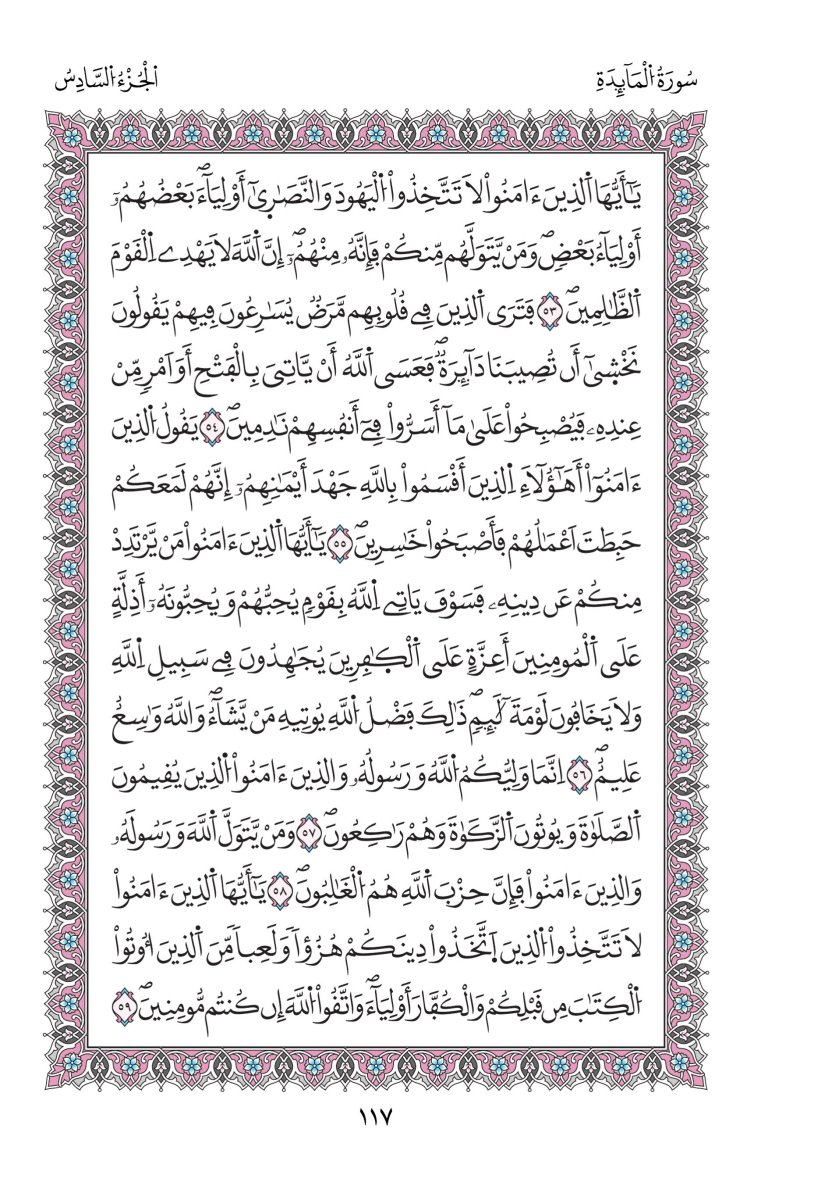 سُورَةُ اُ۬لْمَآئِدَةِ
اَ۬لْجُزْءُ اُ۬لسَّادِسُ
يَٰٓأَيُّهَا اَ۬لذِينَ ءَامَنُواْ لَا تَتَّخِذُواْ اُ۬لْيَهُودَ وَالنَّصَٰر۪ىٰٓ أَوْلِيَآءَۖ بَعْضُهُمُۥٓ
أَوْلِيَآءُ بَعْضٖۖ وَمَنْ يَّتَوَلَّهُم مِّنكُمْ فَإِنَّهُۥ مِنْهُمُۥٓۖ إِنَّ اَ۬للَّهَ لَا يَهْدِے اِ۬لْقَوْمَ
اَ۬لظَّٰلِمِينَۖ ٥٣ فَتَرَى اَ۬لذِينَ فِے قُلُوبِهِم مَّرَضٞ يُسَٰرِعُونَ فِيهِمْ يَقُولُونَ
نَخْش۪ىٰٓ أَن تُصِيبَنَا دَآئِرَةٞۖ فَعَسَى اَ۬للَّهُ أَنْ يَّاتِيَ بِالْفَتْحِ أَوَ اَمْرٖ مِّنْ
عِندِهِۦ فَيُصْبِحُواْ عَلَىٰ مَآ أَسَرُّواْ فِےٓ أَنفُسِهِمْ نَٰدِمِينَۖ ٥٤ يَقُولُ اُ۬لذِينَ
ءَامَنُوٓاْ أَهَٰٓؤُلَآءِ اِ۬لذِينَ أَقْسَمُواْ بِاللَّهِ جَهْدَ أَيْمَٰنِهِمُۥٓ إِنَّهُمْ لَمَعَكُمْ
حَبِطَتَ اَعْمَٰلُهُمْ فَأَصْبَحُواْ خَٰسِرِينَۖ ٥٥ يَٰٓأَيُّهَا اَ۬لذِينَ ءَامَنُواْ مَنْ يَّرْتَدِدْ
مِنكُمْ عَن دِينِهِۦ فَسَوْفَ يَاتِے اِ۬للَّهُ بِقَوْمٖ يُحِبُّهُمْ وَيُحِبُّونَهُۥٓ أَذِلَّةٍ
عَلَى اَ۬لْمُومِنِينَ أَعِزَّةٍ عَلَى اَ۬لْكٰ۪فِرِينَ يُجَٰهِدُونَ فِے سَبِيلِ اِ۬للَّهِ
وَلَا يَخَافُونَ لَوْمَةَ لَآئِمٖۖ ذَٰلِكَ فَضْلُ اُ۬للَّهِ يُوتِيهِ مَنْ يَّشَآءُۖ وَاللَّهُ وَٰسِعٌ
عَلِيمٌۖ ٥٦ اِنَّمَا وَلِيُّكُمُ اُ۬للَّهُ وَرَسُولُهُۥ وَالذِينَ ءَامَنُواْ اُ۬لذِينَ يُقِيمُونَ
اَ۬لصَّلَوٰةَ وَيُوتُونَ اَ۬لزَّكَوٰةَ وَهُمْ رَٰكِعُونَۖ ٥٧ وَمَنْ يَّتَوَلَّ اَ۬للَّهَ وَرَسُولَهُۥ
وَالذِينَ ءَامَنُواْ فَإِنَّ حِزْبَ اَ۬للَّهِ هُمُ اُ۬لْغَٰلِبُونَۖ ٥٨ يَٰٓأَيُّهَا اَ۬لذِينَ ءَامَنُواْ
لَا تَتَّخِذُواْ اُ۬لذِينَ اَ۪تَّخَذُواْ دِينَكُمْ هُزُؤاٗ وَلَعِباٗ مِّنَ اَ۬لذِينَ أُوتُواْ
اُ۬لْكِتَٰبَ مِن قَبْلِكُمْ وَالْكُفَّارَ أَوْلِيَآءَۖ وَاتَّقُواْ اُ۬للَّهَ إِن كُنتُم مُّومِنِينَۖ ٥٩
١١٧